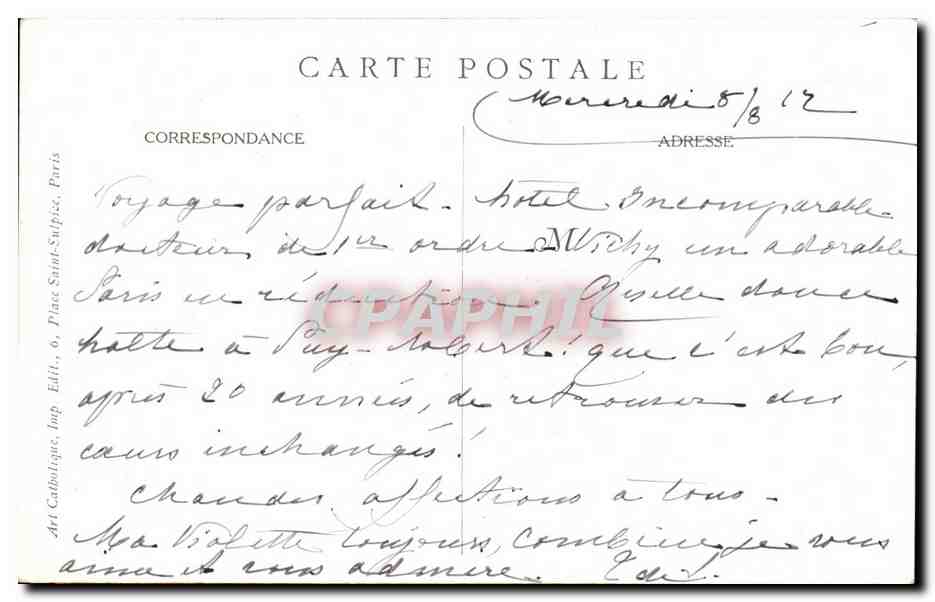 CARTE POSTALE
Mercredi 8/8 12
CORRESPONDANCE
ADRESSE
Voyage parfait - hotel Incomparable
docteur de 1er ordre M Vichy un adorable
Paris en réduction. Giselle douce
halte à Puy-Robert! que c'est bon,
après 20 années, de retrouver des
cœurs inchangés!
Chaudes affections à tous -
Ma Violette toujours, combien je vous
aime et vous admire.
Art Catholique, Imp. Edit., 6, Place Saint-Sulpice, Paris
CPAPHIL